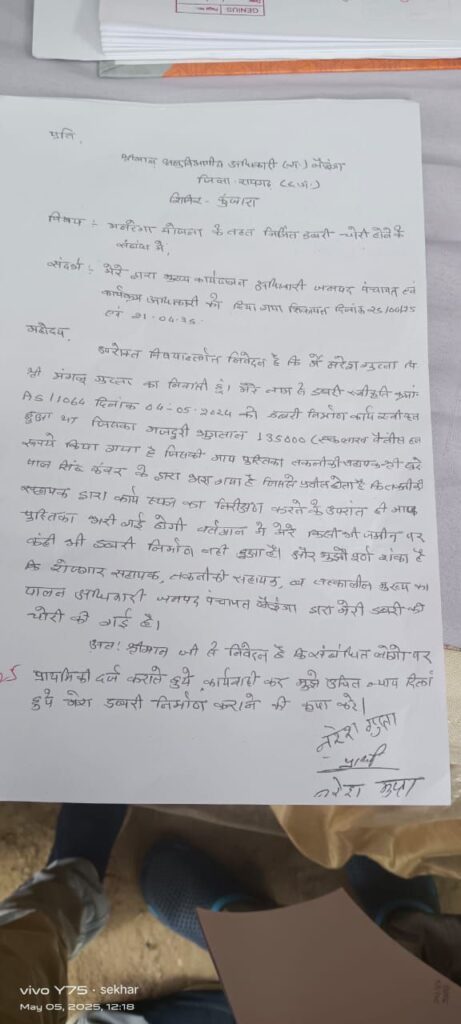 GENIUS
प्रति,
श्रीमान अनुविभागीय अधिकारी (रा.) लैलूंगा
जिला-रायगढ़ (छ.ग.)
शिविर- कुंजारा
विषय :- मनरेगा योजना के तहत निर्मित डबरी चोरी होने के
संबंध में,
संदर्भ :- मेरे द्वारा मुख्य कार्यपालन अधिकारी जनपद पंचायत एवं
कार्यक्रम अधिकारी को दिया गया शिकायत दिनांक
एवं 21-04-25.
महोदय,
उपरोक्त विषयान्तर्गत निवेदन है कि मैं नरेश गुप्ता
श्री मंगलू गुप्ता का निवासी हूं। मेरे नाम से डबरी स्वीकृति
AS 11064 दिनांक 04-05-2024 को डबरी निर्माण कार्य स्वीकृत
हुआ था जिसका मजदूरी भुगतान 135000 (एक लाख पैंतीस
रूपये किया गया है जिसकी माप पुस्तिका तकनीकी सहायक श्री
पाल सिंह कंवर के द्वारा भरा गया है जिससे प्रतीत होता है कि तकनीकी
सहायक द्वारा कार्य स्थल का निरीक्षण करने के उपरांत ही माप
पुस्तिका भरी गई होगी वर्तमान में मेरे किसी भी जमीन पर
कहीं भी डबरी निर्माण नहीं हुआ है। और मुझे पूर्ण शंका है
कि रोजगार सहायक, तकनीकी सहायक, व तत्कालीन मुख्य का
पालन अधिकारी जनपद पंचायत लैलूंगा द्वारा मेरी डबरी की
चोरी की गई है।
अतः श्रीमान जी से निवेदन है कि संबंधित लोगो पर
प्राथमिकी दर्ज कराते हुये कार्यवाही कर मुझे उचित न्याय दिलाते
हुये मेरा डबरी निर्माण कराने की कृपा करें।
नरेश गुप्ता
प्रार्थी
नरेश गुप्ता
vivo Y75 · sekhar
May 05, 2025, 12:18